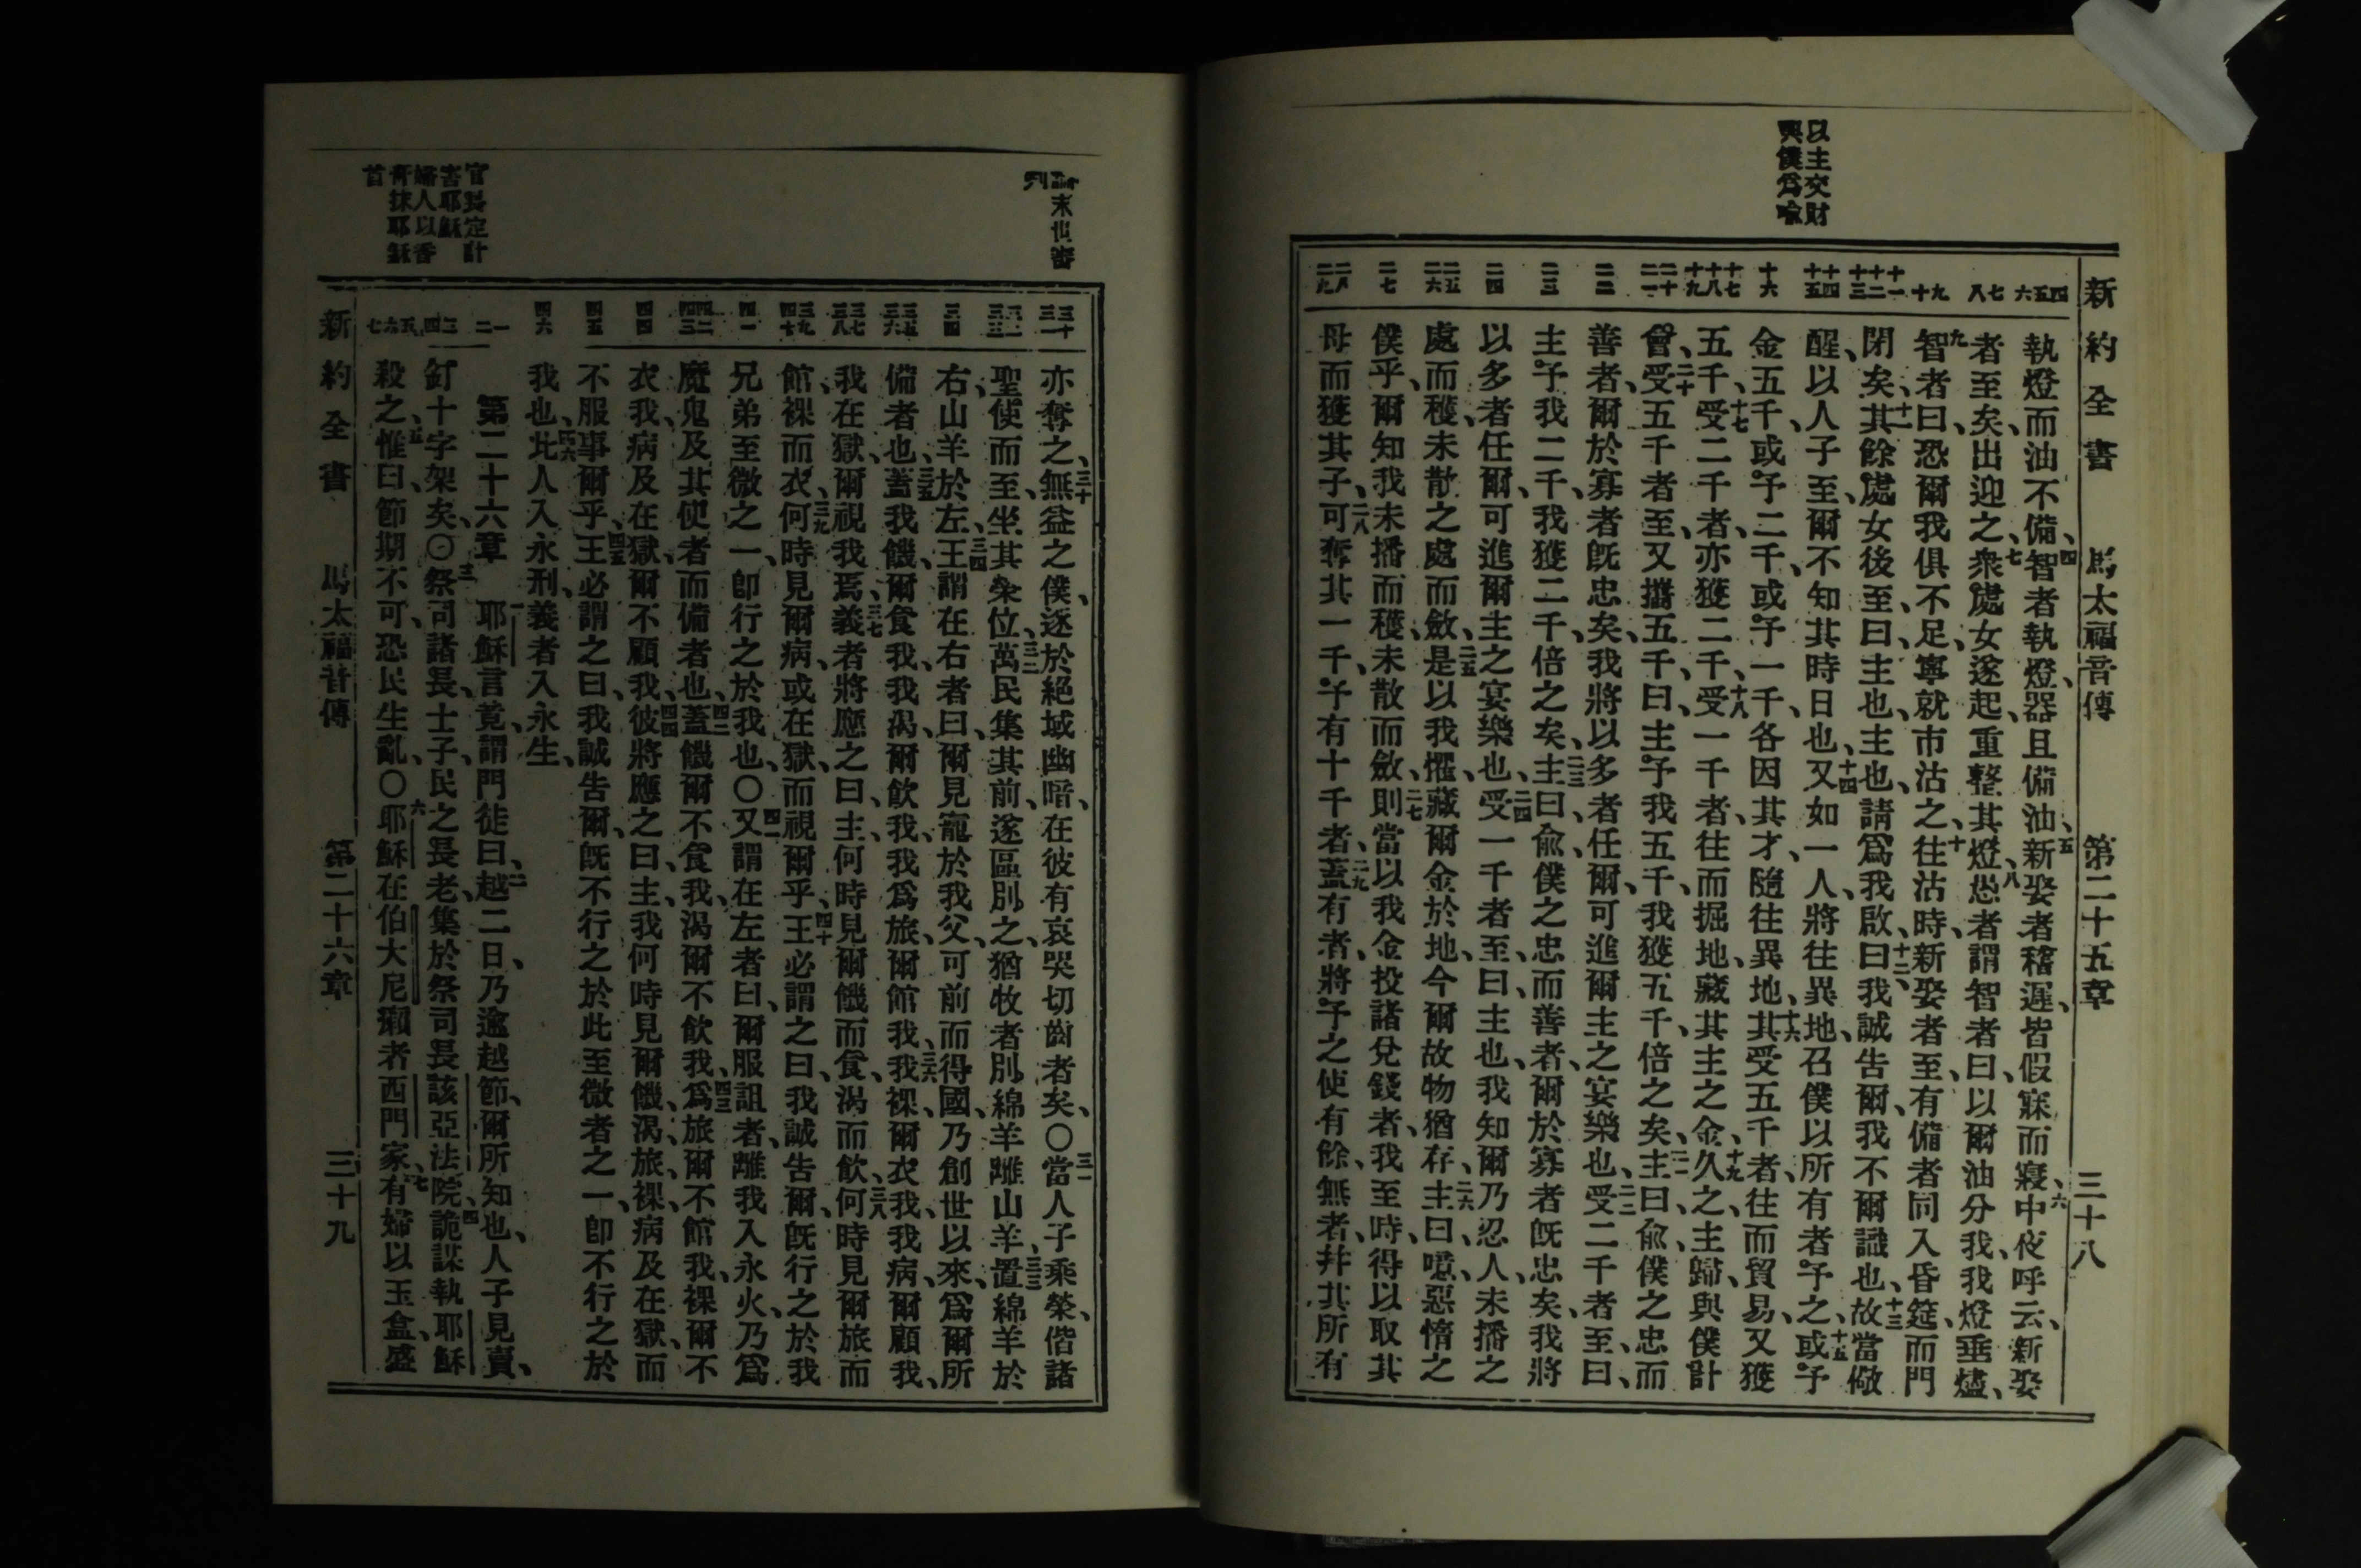 新約全書 馬太福音傳 第二十五章 三十八
以主交財
與僕爲喩
四 五 六 七 八 九 十 十一 十二 十三 十四 十五 十六 十七 十八 十九 二十 二一 二二 二三 二四 二五 二六 二七 二八 二九
執燈而油不備、四智者執燈、器且備油、五新娶者稽遲、皆假寐而寢、六中夜呼云、新娶
者至矣、出迎之、七衆處女遂起、重整其燈、八愚者謂智者曰、以爾油分我、我燈垂燼、
九智者曰、恐爾我俱不足、寧就市沽之、十往沽時、新娶者至、有備者同入昏筵、而門
閉矣、十一其餘處女後至、曰、主也、主也、請爲我啟、十二曰、我誠告爾、我不爾識也、十三故當儆
醒、以人子至、爾不知其時日也、十四又如一人、將往異地、召僕以所有者予之、十五或予
金五千、或予二千、或予一千、各因其才、隨往異地、十六其受五千者、往而貿易、又獲
五千、十七受二千者、亦獲二千、十八受一千者、往而掘地、藏其主之金、十九久之、主歸、與僕計
會、二十受五千者至、又攜五千、曰、主予我五千、我獲五千、倍之矣、二一主曰、兪、僕之忠而
善者、爾於寡者旣忠矣、我將以多者任爾、可進爾主之宴樂也、二二受二千者至、曰、
主予我二千、我獲二千、倍之矣、二三主曰、兪、僕之忠而善者、爾於寡者旣忠矣、我將
以多者任爾、可進爾主之宴樂也、二四受一千者至、曰、主也、我知爾乃忍人、未播之
處而穫、未散之處而斂、二五是以我懼、藏爾金於地、今爾故物猶存、二六主曰、噫、惡惰之
僕乎、爾知我未播而穫、未散而斂、二七則當以我金投諸兌錢者、我至時、得以取其
母而獲其子、二八可奪其一千、予有十千者、二九蓋有者、將予之、使有餘、無者、幷其所有
論末世審
判
三十 三一 三二 三三 三四 三五 三六 三七 三八 三九 四十 四一 四二 四三 四四 四五 四六
亦奪之、三十無益之僕、逐於絕域幽暗、在彼有哀哭切齒者矣、〇三一當人子乘榮、偕諸
聖使而至、坐其榮位、三二萬民集其前、遂區別之、猶牧者別綿羊離山羊、三三置綿羊於
右、山羊於左、三四王謂在右者曰、爾見寵於我父、可前而得國、乃創世以來、爲爾所
備者也、三五蓋我饑、爾食我、我渴、爾飲我、我爲旅、爾館我、三六我裸、爾衣我、我病、爾顧我、
我在獄、爾視我焉、三七義者將應之曰、主、何時見爾饑而食、渴而飲、三八何時見爾旅而
館、裸而衣、三九何時見爾病、或在獄、而視爾乎、四十王必謂之曰、我誠告爾、旣行之於我
兄弟至微之一、卽行之於我也、〇四一又謂在左者曰、爾服詛者、離我入永火、乃爲
魔鬼及其使者而備者也、四二蓋饑爾不食我、渴爾不飲我、四三爲旅、爾不館我、裸爾不
衣我、病及在獄、爾不顧我、四四彼將應之曰、主、我何時見爾饑、渴、旅、裸、病及在獄、而
不服事爾乎、四五王必謂之曰、我誠告爾、旣不行之於此至微者之一、卽不行之於
我也、四六此人入永刑、義者入永生、
官長定計
害耶穌
婦人以香
膏抹耶穌
首
一 二 三 四 五 六 七
第二十六章 一耶穌言竟、謂門徒曰、二越二日、乃逾越節、爾所知也、人子見賣、
釘十字架矣、〇三祭司諸長、士子、民之長老、集於祭司長該亞法院、四詭謀執耶穌
殺之、五惟曰、節期不可、恐民生亂、〇六耶穌在伯大尼癩者西門家、七有婦以玉盒、盛
新約全書 馬太福音傳 第二十六章 三十九